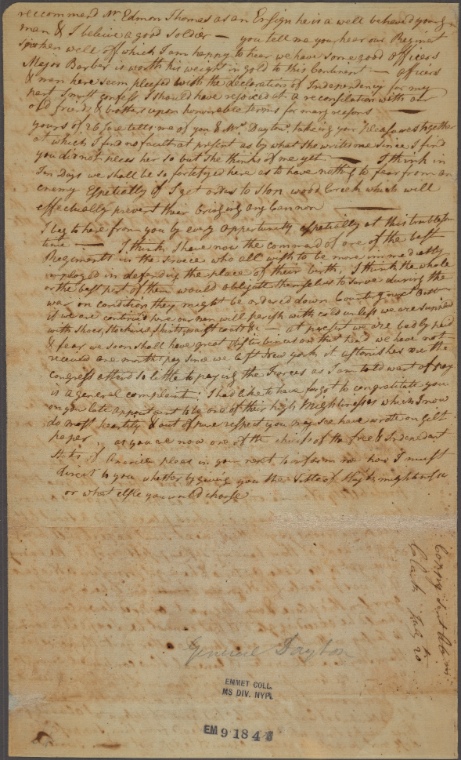 reccommend Mr. Edmon Thomas as an Ensign he is a well behaved young
man & I believe a good soldier — you tell me you hear our Regiment
spoken well off which I am happy to hear we have some good officers
Major Barber is worth his weight in gold to this Continent — officers
& men here seem pleased with the declaration of Independency for my
part I must confess I should have rejoiced at a reconsilation with our
old friends & brothers upon honourable terms for many reasons —
yours of 26 June tells me of you & Mrs. Dayton taking your pleasures together
at which I find no fault at present as by what she writes me since I find
you did not kiss her so but she thinks of me yet — I think in
Ten days we shall be so fortifyed here as to have nothing to fear from an
enemy Espetially if I get orders to stop wood Creek which will
effectually prevent their bringing any Cannon
I beg to hear from you by every opportunity espetially at this troublesome
time — I think I have now the command of one of the best
Regiments in the service who all wish to be more immediately
imployed in defending the place of their birth, I think the whole
or the best part of them would obligate themselves to serve during the
war, on condition they might be ordered down
if we are continued here our men will perish with cold unless we are supplied
with shoes, stockings shirts &c — at present we are badly paid
& I fear we soon shall have great difficulties on that head we have not
received one months pay since we left New york it astonishes me the
congress attend so little to paying the forces as I am told want of pay
is a general complaint I had like to have forgot to congratulate you
on your late appointment to be one of their high Mightinesses which I now
do most heartily & out of pure respect you may see have wrote on gilt
paper as you are now one of the chiefs of the free & Independant
States of America please in your next to inform me how I must
direct to you whether by giving you the title of high & mightiness
or what else you would chuse
Copy
Clark July 20
General Dayton
EMMET COLL.
MS DIV. NYPL
EM 9184